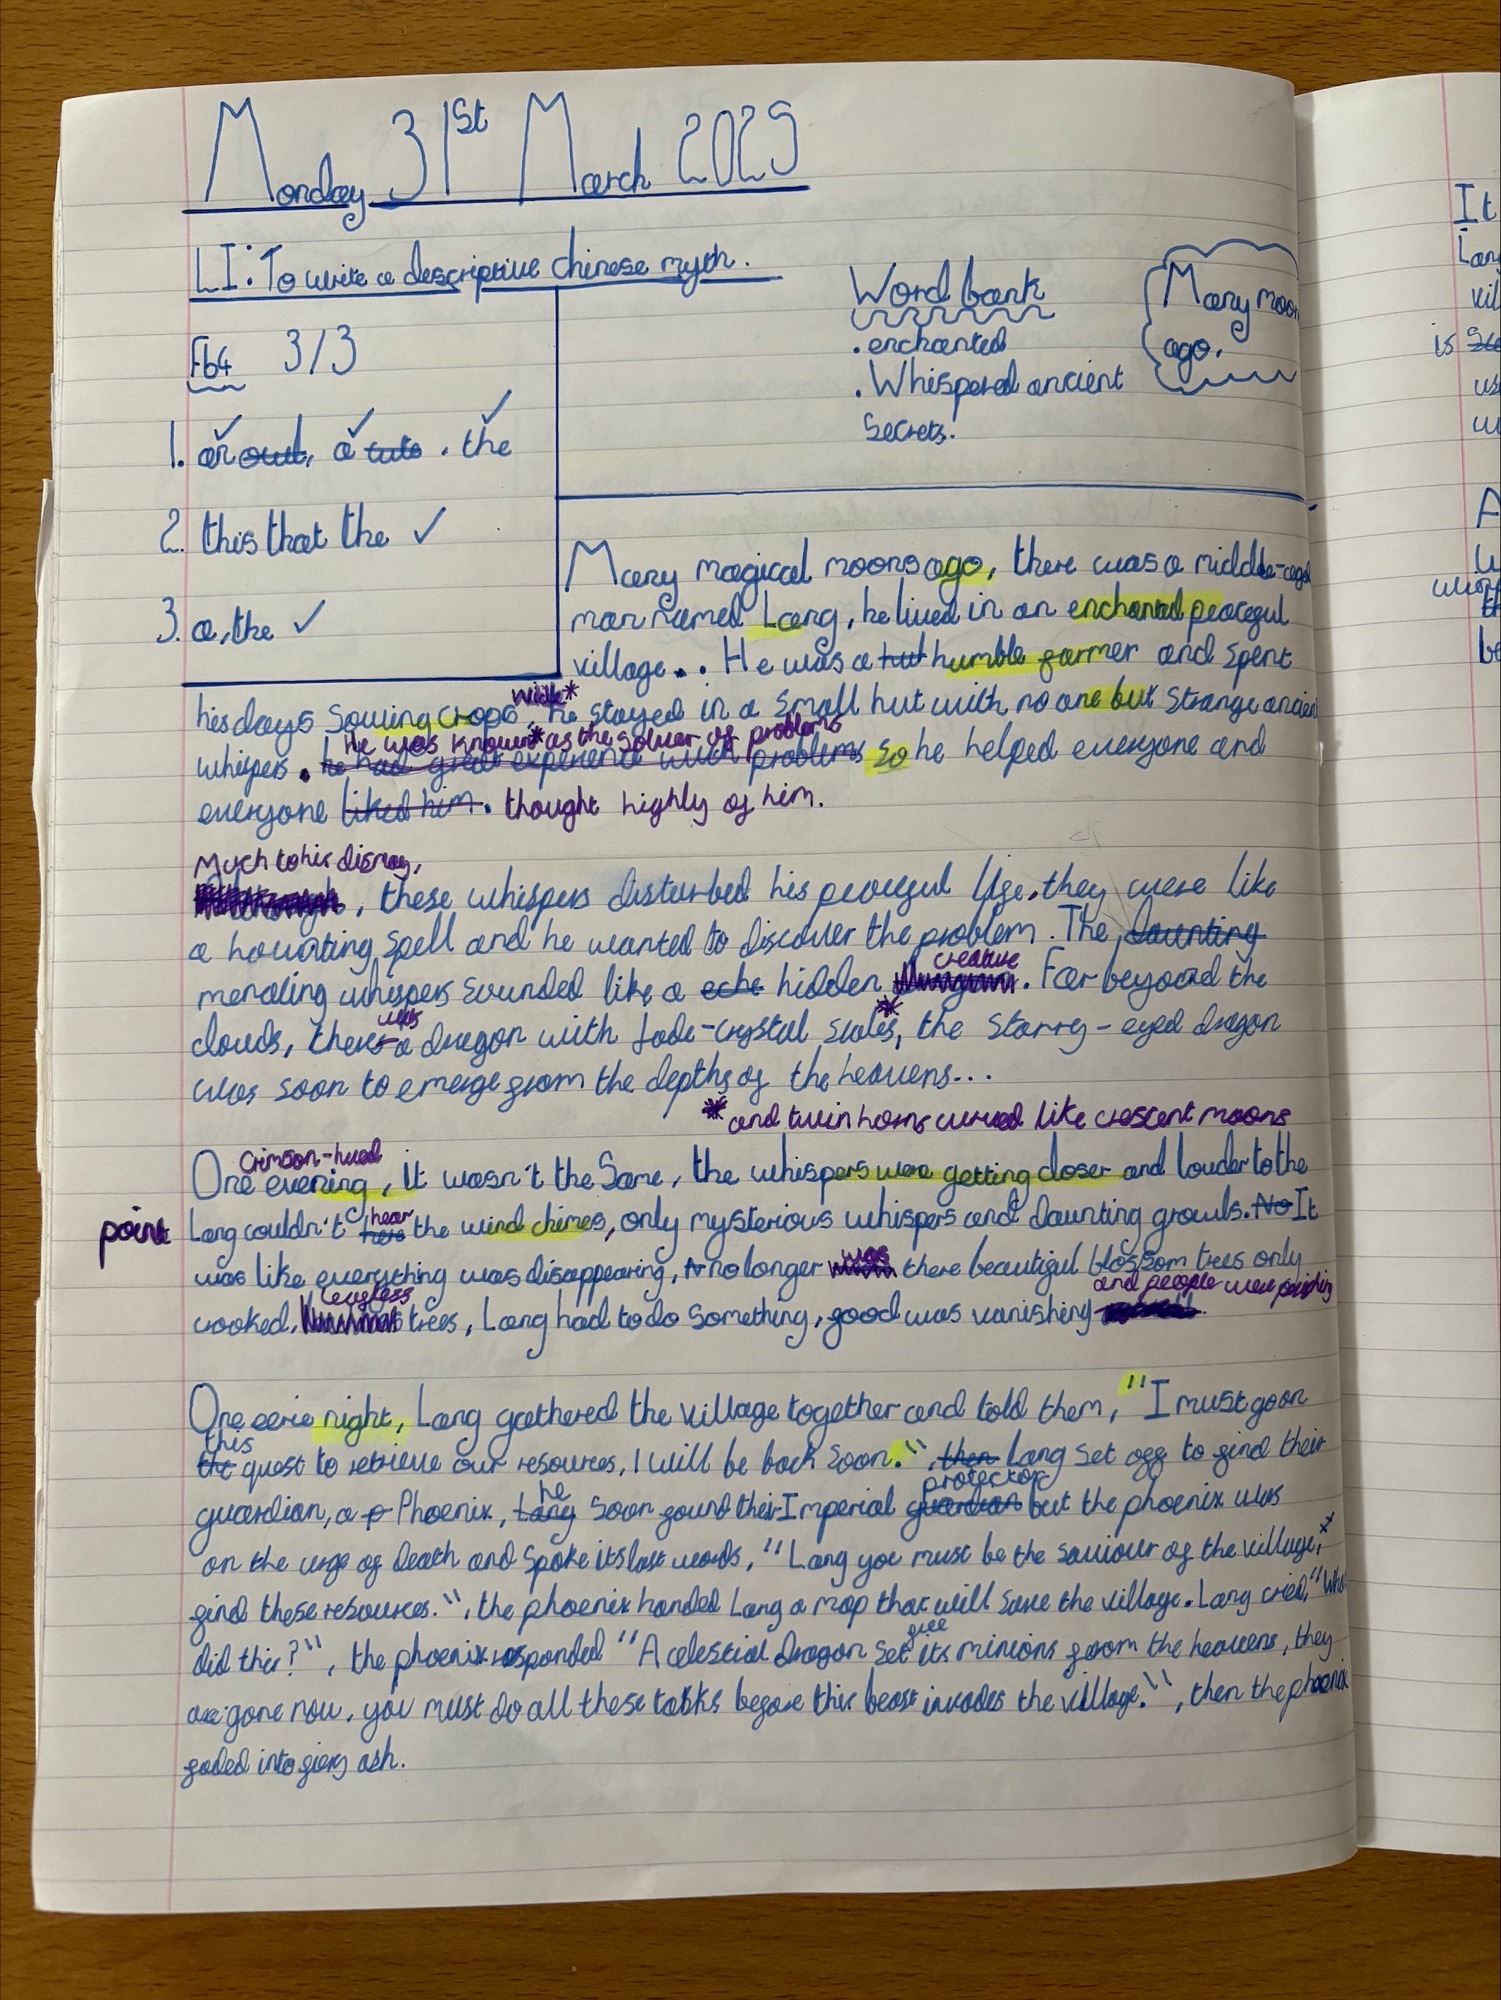 Monday 31st March 2025
LI: To write a descriptive chinese myth.
Fb4 3/3
1. an out, a tuto. the
2. this that the
3. a, the
Word bank
. enchanted
. Whispered ancient
Secrets.
Many moons
ago.
Many magical moons ago, there was a middle-aged
man named Lang, he lived in an enchanted peaceful
village... He was a hut humble farmer and spent
his days sowing crops, while* he stayed in a small hut with no one but strange ancient
he was known* as the solver of problems
whispers. he had great experience with problems so he helped everyone and
everyone liked him. thought highly of him.
Much to his dismay,
, these whispers disturbed his peaceful life, they were like
a haunting spell and he wanted to discover the problem. The daunting
menacing whispers sounded like a echo hidden creature. Far beyond the
clouds, there was a dragon with Jade-crystal scales*, the starry-eyed dragon
was soon to emerge from the depths of the heavens...
* and twin horns curved like crescent moons
One crimson-hued evening, it wasn't the same, the whispers were getting closer and louder to the
point Lang couldn't hear the wind chimes, only mysterious whispers and daunting growls. No It
was like everything was disappearing, no longer was there beautiful blossom trees only
crooked, trees, Lang had to do something, good was vanishing and people were perishing
One eerie night, Lang gathered the village together and told them, "I must go on
this
the quest to retrieve our resources, I will be back soon.", then Lang set off to find their
guardian, a p Phoenix, Lang he soon found their Imperial guardian protector but the phoenix was
on the urge of death and spoke its last words, "Lang you must be the saviour of the village,
find these resources.", the phoenix handed Lang a map that will save the village. Lang cried, "Who
did this?", the phoenix responded "A celestial dragon set free its minions from the heavens, they
are gone now, you must do all these tasks before this beast invades the village.", then the phoenix
faded into fiery ash.
It
Lang
vil
is
us
w
A
be